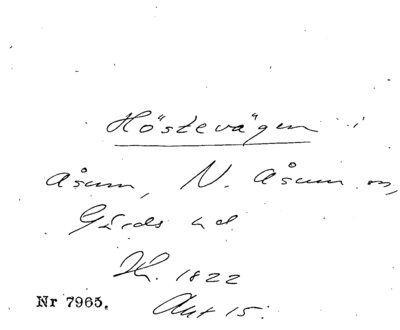 Höstevägen
Åsum, N. Åsum sn,
Gärds hd
Sk. 1822
Akt 15.
Nr 7965.